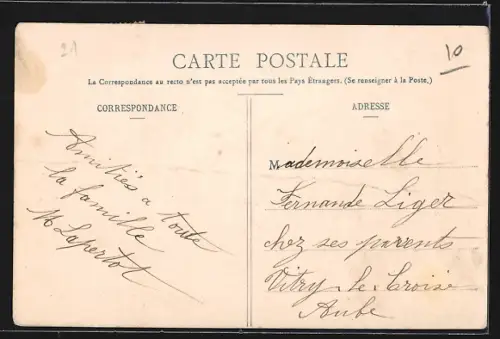 21
10
CARTE POSTALE
La Correspondance au recto n'est pas acceptée par tous les Pays Étrangers. (Se renseigner à la Poste.)
CORRESPONDANCE
Amitiés a toute
la famille
M Lapertot
ADRESSE
Mademoiselle
Fernande Liger
chez ses parents
Vitry le Croisé
Aube